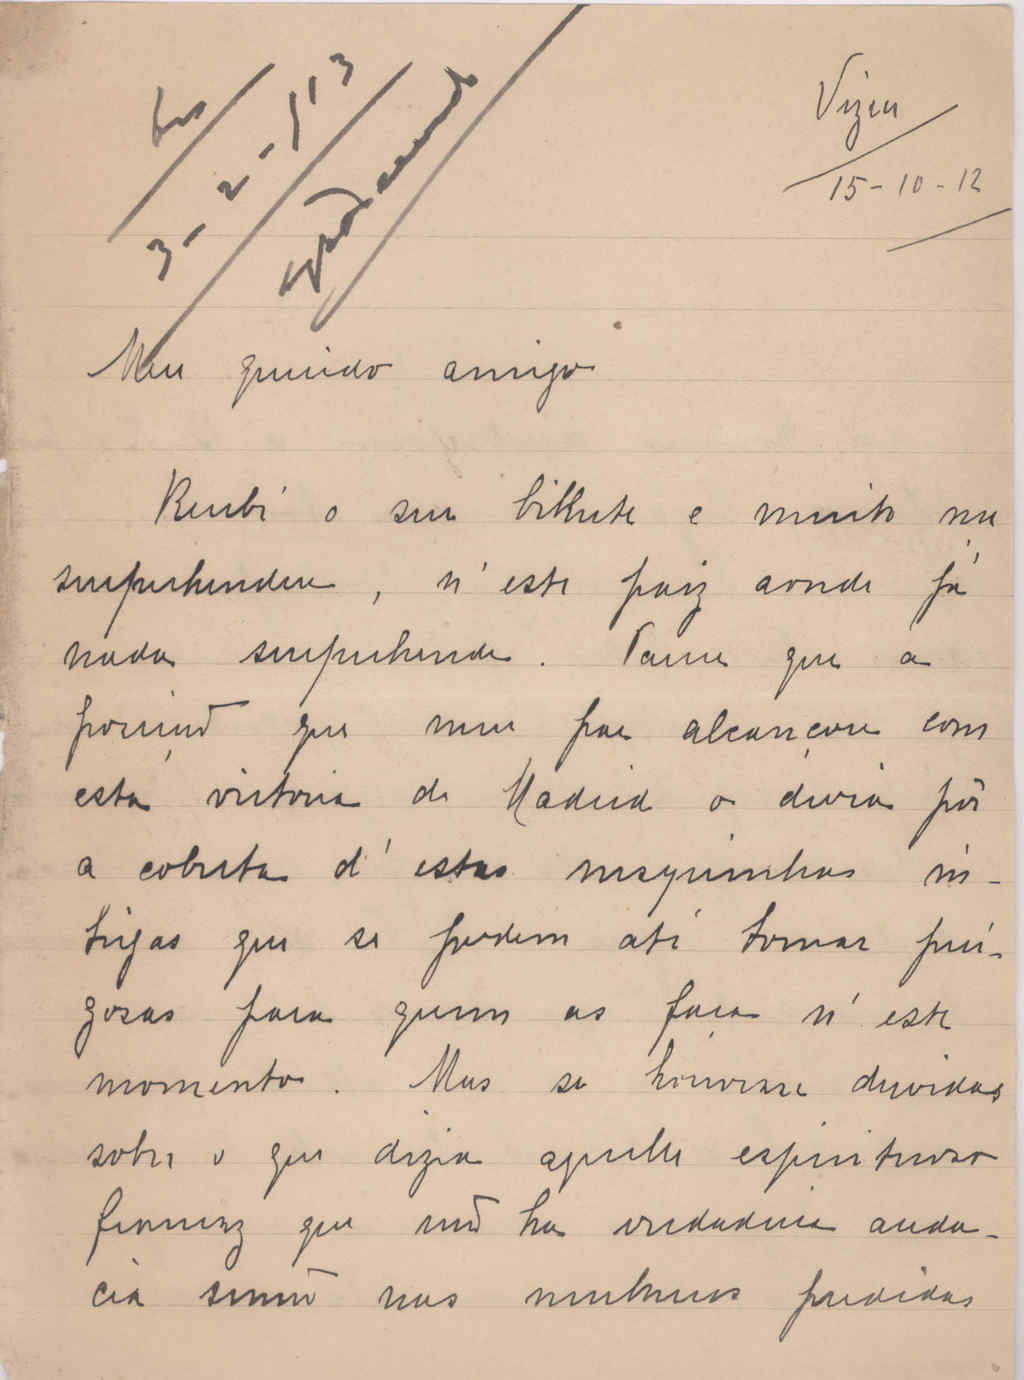 3-2-913
Vizeu
15-10-12
Meu querido amigo
Recebi o seu bilhete e muito me
surprehendeu, n'este paiz aonde já
nada surprehende. Parece que a
posição que meu pae alcançou com
esta victoria de Madrid o devia pôr
a coberta d'estas mesquinhas in-
trigas que se podem até tornar peri-
gosas para quem as faça n'este
momento. Mas se houvesse duvidas
sobre o que dizia aquelle espirituoso
francez que não ha verdadeira auda-
cia senão nas mulheres perdidas